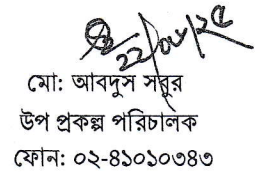 ২২/০৮/২৫
মো: আবদুস সবুর
উপ প্রকল্প পরিচালক
ফোন: ০২-৪১০১০৩৪৩